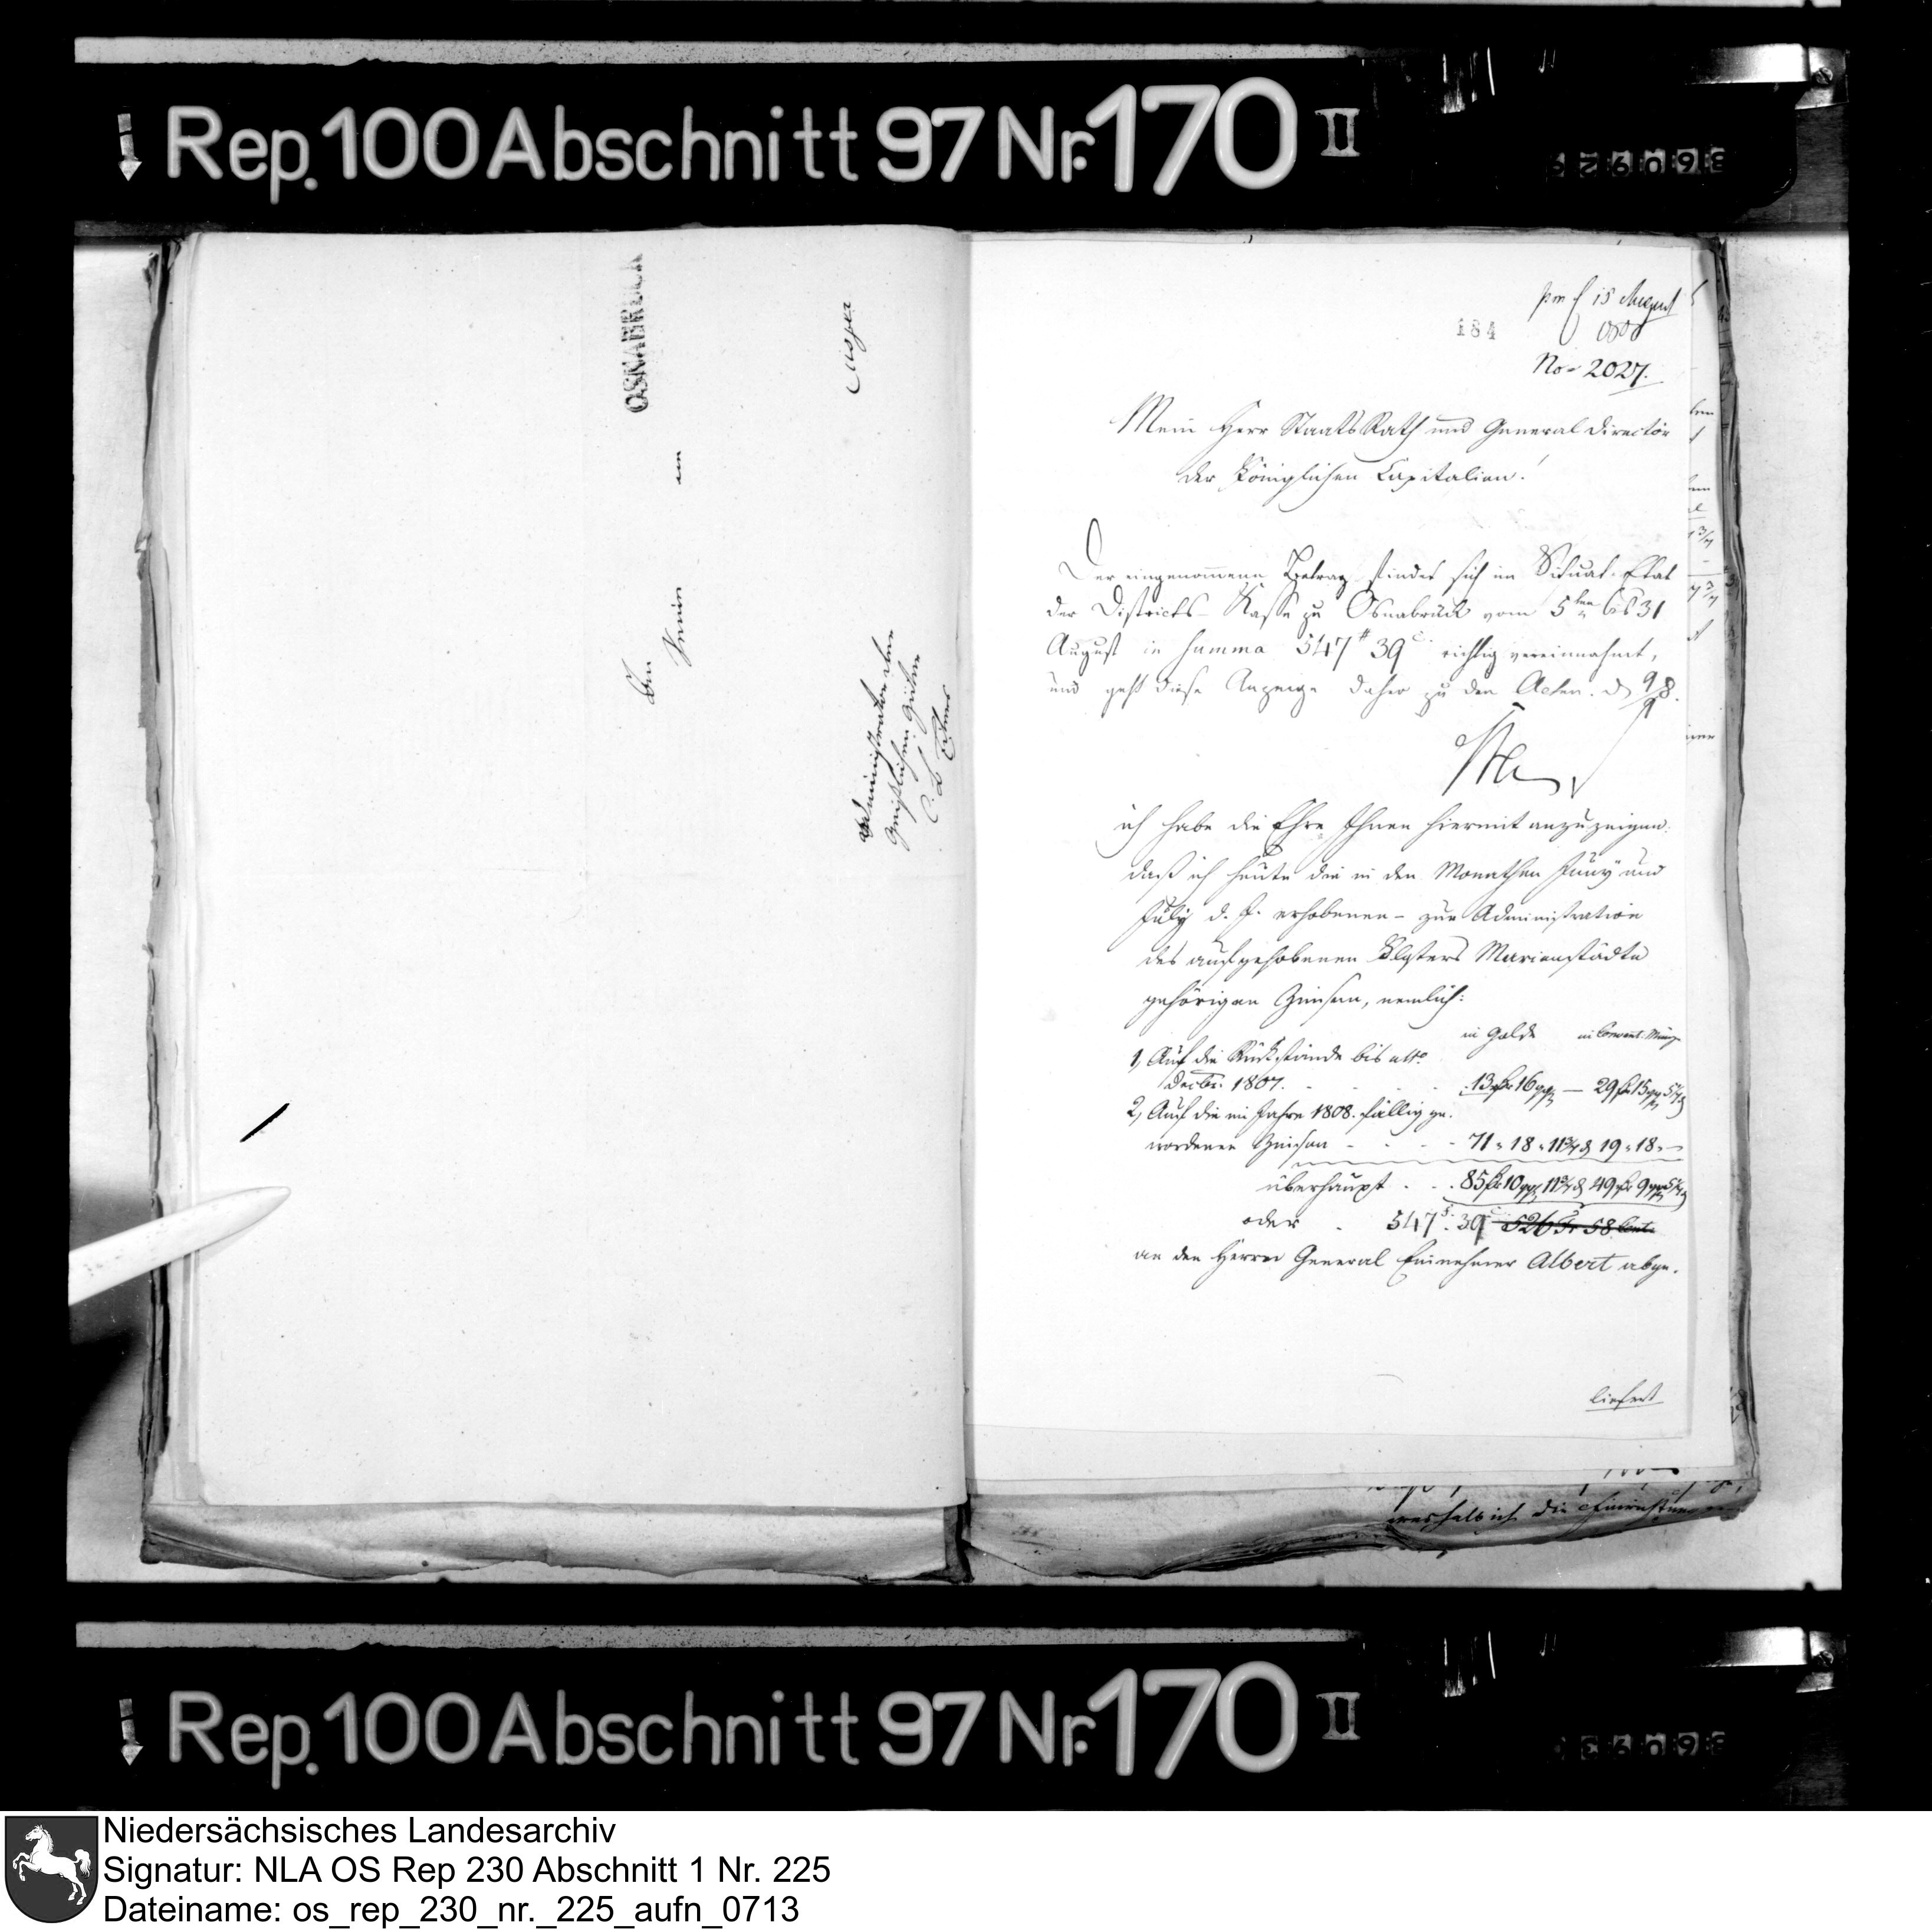 Rep. 100 Abschnitt 97 Nr. 170 II
OSNABRÜCK
Administrator der
Geistlichen Güter
184
15 August
1808
No. 2027.
Mein Herr StaatsRath und General Director
der Königlichen Capitalien!
Der eingenommene Betrag findet sich im Situat. Etat
der Districts-Kasse zu Osnabrück vom 5ten bis 31
August in Summa 547 39 c. richtig vereinnahmt,
und geht diese Anzeige daher zu den Acten. d 9/9 8.
ich habe die Ehre Ihnen hiermit anzuzeigen:
daß ich heute die in den Monathen Juny und
July d. J. erhobenen – zur Administration
des aufgehobenen Klosters Marienstädte
gehörigen Zinsen, nemlich:
in Golde in Convent. Münze
1, Auf die Rückstände bis ult.
Decbr. 1807. 13 16 — 29 15
2, Auf die im Jahre 1808. fällig ge-
wordenen Zinsen 71 " 18 " 19 " 18 " —
überhaupt 85 10 49 9
oder 547 39 526 Fr 58 Cent.
an den Herrn General Einnehmer Albert abge-
liefert
weshalb ich die Einrichtung
Rep. 100 Abschnitt 97 Nr. 170 II
Niedersächsisches Landesarchiv
Signatur: NLA OS Rep 230 Abschnitt 1 Nr. 225
Dateiname: os_rep_230_nr._225_aufn_0713